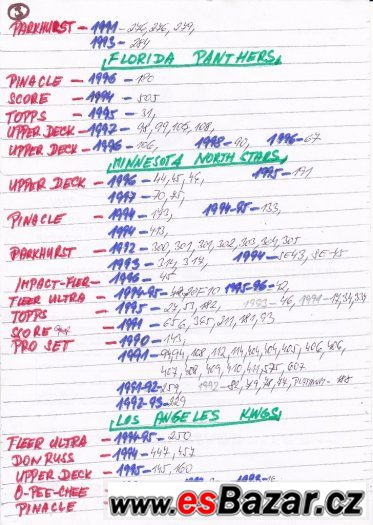 3
PARKHURST - 1991 - 276, 276, 279,
1993 - 284
FLORIDA PANTHERS
PINACLE - 1996 - 190
SCORE - 1994 - 505
TOPPS - 1995 - 31,
UPPER DECK - 1992 - 98, 99, 105, 108,
UPPER DECK - 1996 - 106, 1998 - 90, 1996 - 67
MINNESOTA NORTH STARS
UPPER DECK - 1996 - 44, 45, 46, 1995 - 171
1997 - 70, 75,
PINACLE - 1994 - 173, 1994-95 - 133,
1994 - 413,
PARKHURST - 1992 - 300, 301, 301, 302, 303, 304, 305
1993 - 314, 317, 1994 - SE43, SE-45
IMPACT-FLER - 1996 - 45
FLEER ULTRA - 1994-95 - 1995-96 - 42,
TOPPS - 1995 - 27, 53, 182, 1992 - 46, 1991 - 17, 34, 334
SCORE - 1991 - 656, 365, 211, 181, 93
PRO SET - 1990 - 143,
1991 - 94, 94, 108, 112, 114, 404, 404, 405, 406, 406,
407, 408, 409, 410, 411, 575, 607
1991-92 - 259, 1992 - 82, 79, 78, 74, PLATINUM - 185
1992-93 - 229
LOS ANGELES KINGS
FLEER ULTRA - 1994-95 - 250
DONRUSS - 1994 - 447, 457
UPPER DECK - 1995 - 145, 160
O-PEE-CHEE
PINACLE
www.esBazar.cz